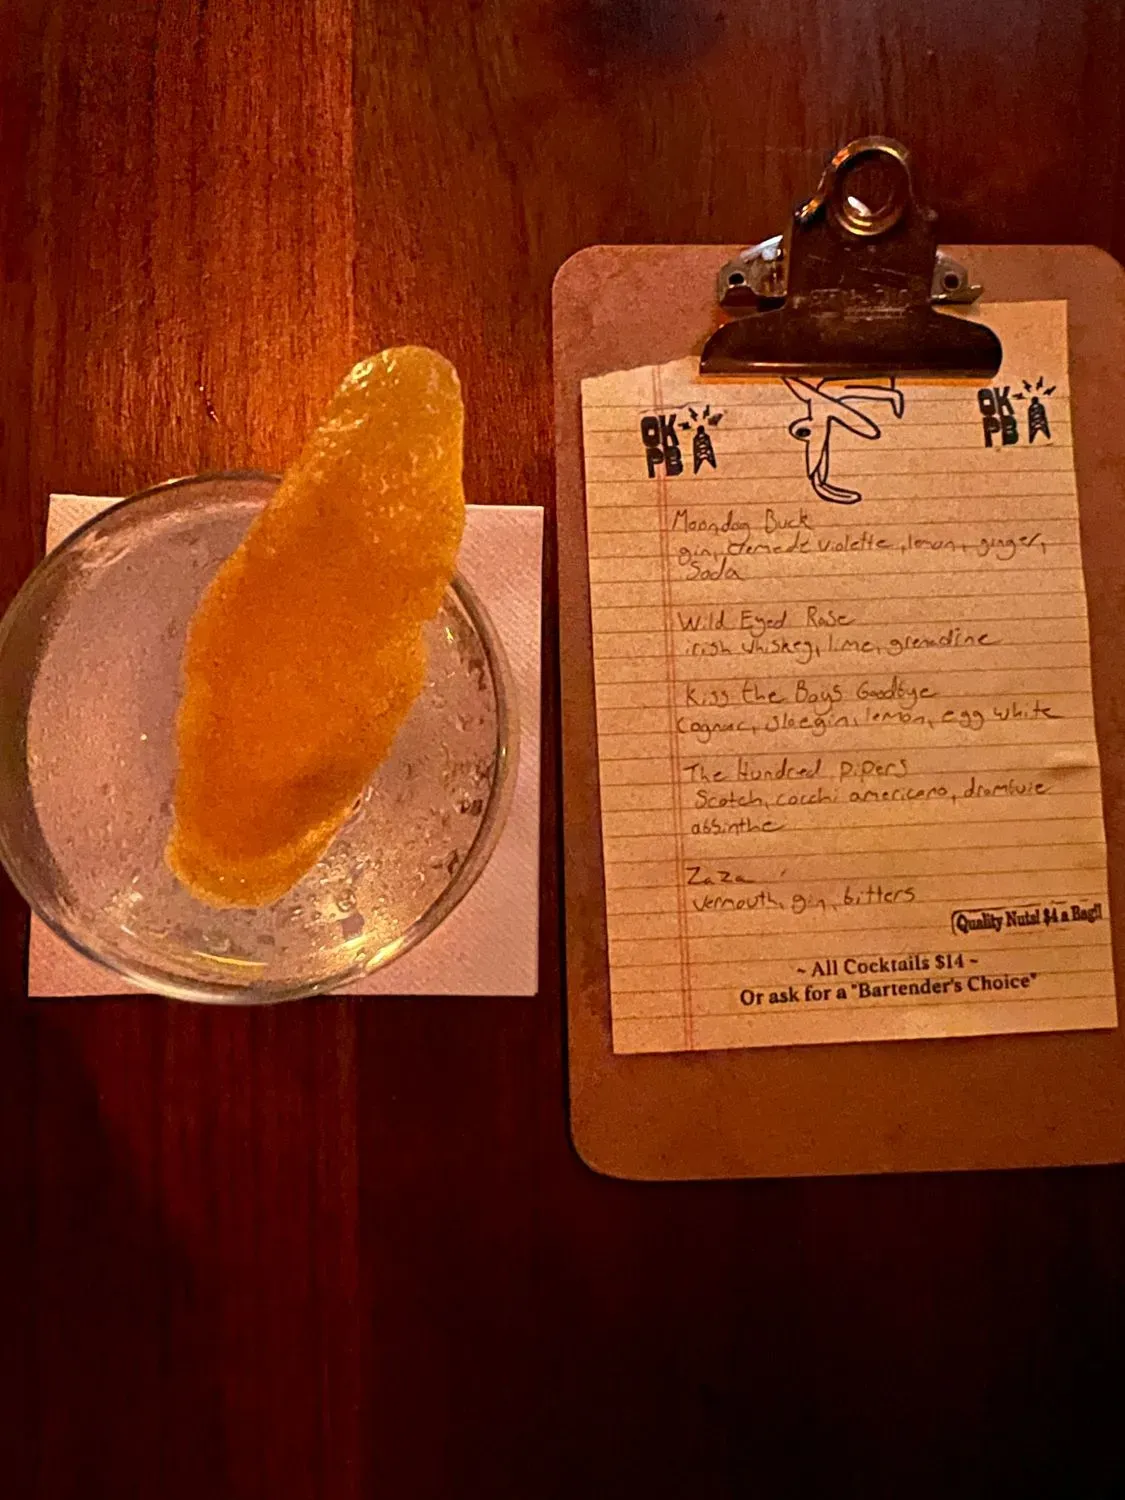 OK
PB
OK
PB
Moondog Buck
gin, creme de violette, lemon, ginger,
Soda
Wild Eyed Rose
irish whiskey, lime, grenadine
Kiss the Boys Goodbye
Cognac, sloe gin, lemon, egg white
The Hundred Pipers
Scotch, cocchi americano, drambuie
absinthe
Zaza
vermouth, gin, bitters
Quality Nuts! $4 a Bag!!
~ All Cocktails $14 ~
Or ask for a "Bartender's Choice"